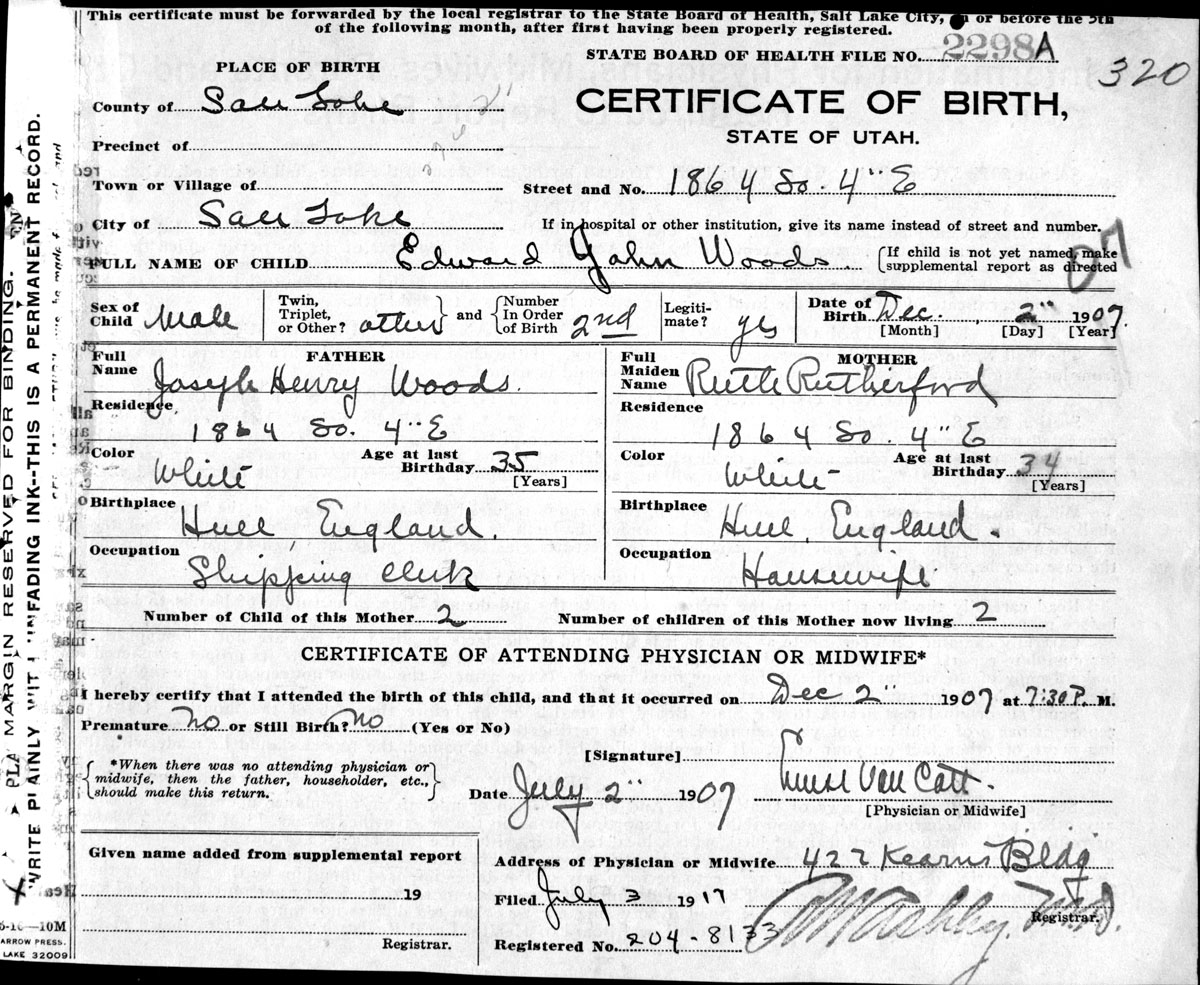 This certificate must be forwarded by the local registrar to the State Board of Health, Salt Lake City, on or before the 5th
of the following month, after first having been properly registered.
STATE BOARD OF HEALTH FILE NO. 2298A
320
PLACE OF BIRTH
County of Salt Lake
CERTIFICATE OF BIRTH,
STATE OF UTAH.
Precinct of
Town or Village of
Street and No. 1864 So. 4" E
City of Salt Lake
If in hospital or other institution, give its name instead of street and number.
07
FULL NAME OF CHILD Edward John Woods
(If child is not yet named, make supplemental report as directed
Sex of Child Male
Twin, Triplet, or Other? other and Number In Order of Birth 2nd
Legitimate? yes
Date of Birth Dec. 2" 1907
[Month] [Day] [Year]
FATHER
Full Name Joseph Henry Woods.
MOTHER
Full Maiden Name Ruth Rutherford
Residence 1864 So. 4" E
Residence 1864 So. 4" E
Color White Age at last Birthday 35 [Years]
Color White Age at last Birthday 34 [Years]
Birthplace Hull, England.
Birthplace Hull, England.
Occupation Shipping Clerk
Occupation Housewife
Number of Child of this Mother 2
Number of children of this Mother now living 2
CERTIFICATE OF ATTENDING PHYSICIAN OR MIDWIFE*
I hereby certify that I attended the birth of this child, and that it occurred on Dec 2" 1907 at 7:30 P. M.
Premature No or Still Birth? No (Yes or No)
*When there was no attending physician or
midwife, then the father, householder, etc.,
should make this return.
[Signature] Van Cott.
Date July 2" 1907
[Physician or Midwife]
Given name added from supplemental report
19
Registrar.
Address of Physician or Midwife 422 Kearns Bldg
Filed July 3 1917
Registrar.
Registered No. 204-8133
MARGIN RESERVED FOR BINDING.
WRITE PLAINLY WITH UNFADING INK--THIS IS A PERMANENT RECORD.
10M
ARROW PRESS.
LAKE 32009